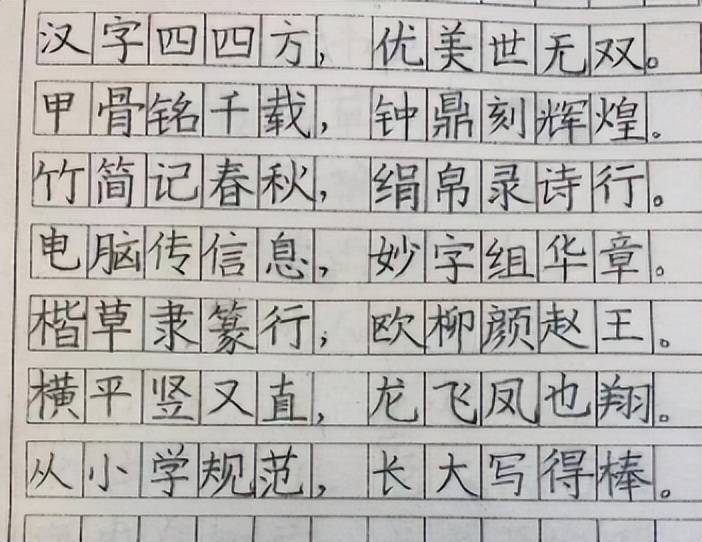 汉字四四方，优美世无双。
甲骨铭千载，钟鼎刻辉煌。
竹简记春秋，绢帛录诗行。
电脑传信息，妙字组华章。
楷草隶篆行，欧柳颜赵王。
横平竖又直，龙飞凤也翔。
从小学规范，长大写得棒。